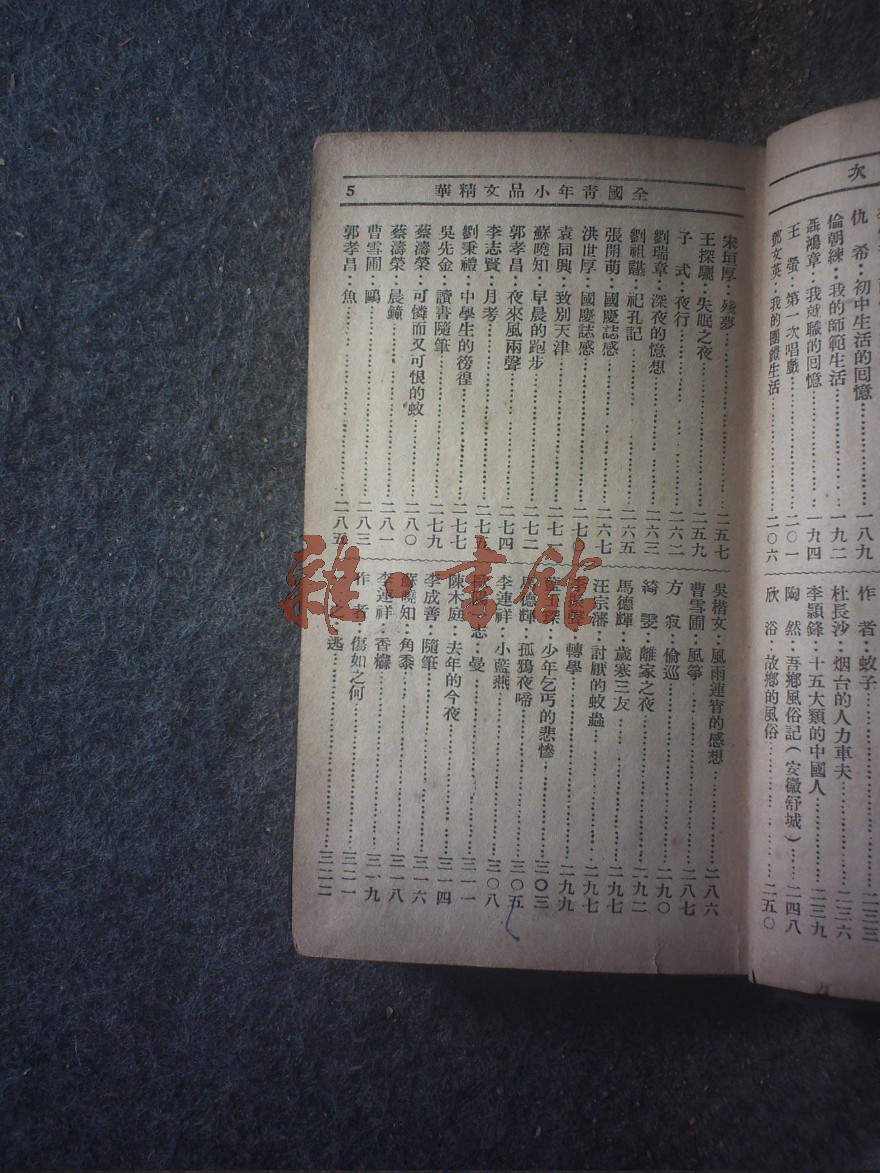 次
仇　希：初中生活的囘憶……一八九
倫朝練：我的師範生活……一九二
聶鴻章：我就職的囘憶……一九四
王　螢：第一次唱戲……二〇一
鄧文英：我的團體生活……二〇六
作　者：蚊子……二三三
杜長沙：烟台的人力車夫……二三六
李頴鋒：十五大類的中國人……二三九
陶　然：吾鄉風俗記（安徽舒城）……二四八
欣　浴：故鄉的風俗……二五〇
全國青年小品文精華
5
宋垣厚：殘夢……二五七
王探驪：失眠之夜……二五九
子　式：夜行……二六二
劉瑞章：深夜的憶想……二六三
劉祖　：祀孔記……二六五
張開萌：國慶誌感……二六七
洪世厚：國慶誌感……二七
袁同興：致別天津……二七一
蘇曉知：早晨的跑步……二七二
郭孝昌：夜來風雨聲……二七四
李志賢：月考……二七五
劉秉禮：中學生的徬徨……二七七
吳先金：讀書隨筆……二七九
蔡濤榮：可憐而又可恨的蚊……二八〇
蔡濤榮：晨鐘……二八一
曹雪圃：鷗……二八三
郭孝昌：魚……二八五
吳楷文：風雨連宵的感想……二八六
曹雪圃：風箏……二八七
方　寂：偷巡……二九〇
綺　雯：離家之夜……二九二
馬德輝：歲寒三友……二九七
汪宗藩：討厭的蚊蟲……二九七
李振聲：轉學……二九九
玉琛：少年乞丐的悲慘……三〇三
馬德輝：孤鴉夜啼……三〇五
李連祥：小藍燕……三〇八
志：曼……三一一
陳木庭：去年的今夜……三一四
李成善：隨筆……三一六
蘇曉知：角黍……三一八
李連祥：香櫞……三一九
作　者：傷如之何……三二一
之：逃……三二二
雜·書館